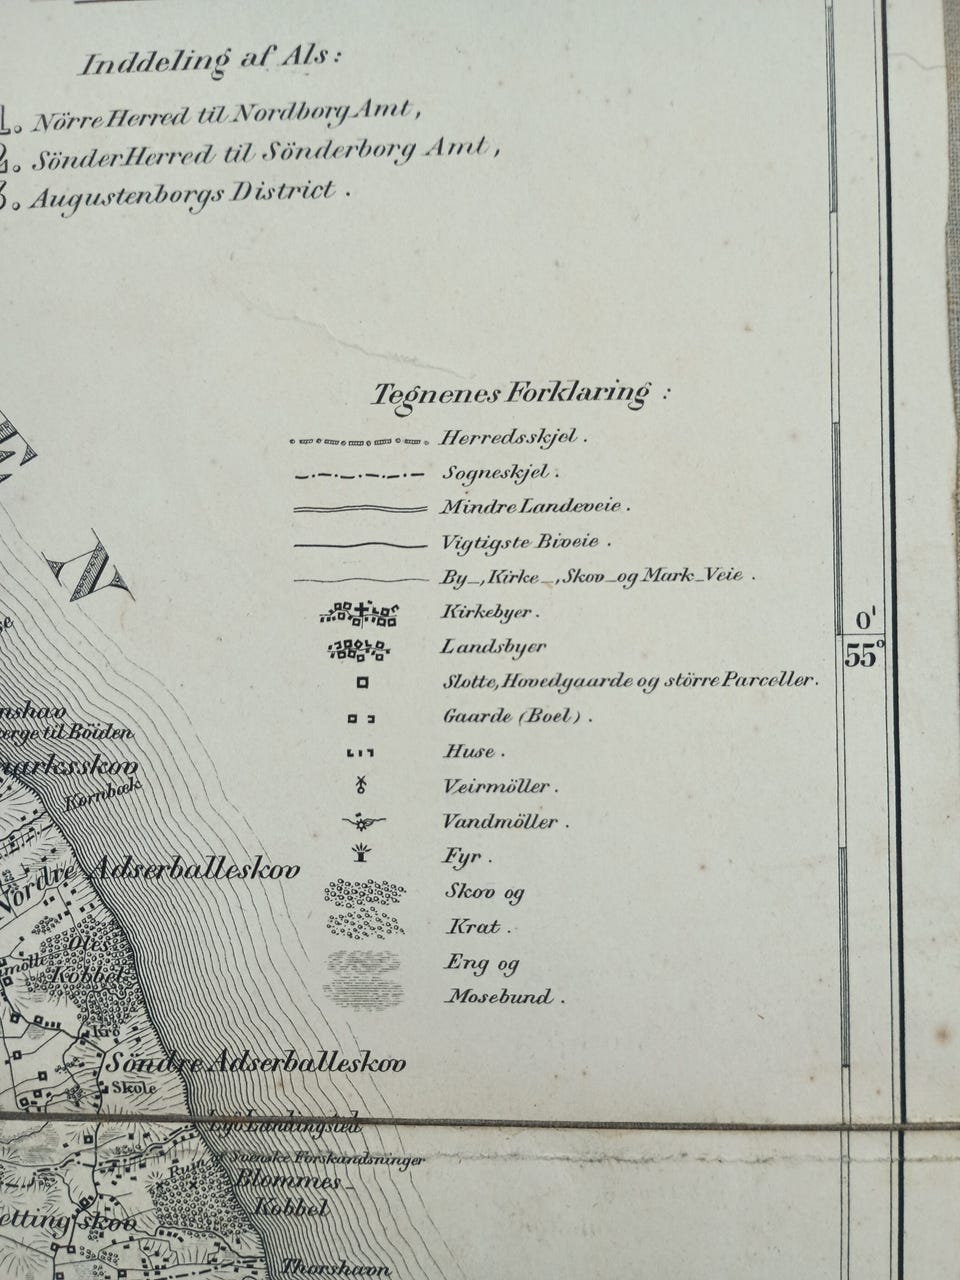 Inddeling af Als:
1. Nörre Herred til Nordborg Amt,
2. Sönder Herred til Sönderborg Amt,
3. Augustenborgs District.
Tegnenes Forklaring:
Herredsskjel.
Sogneskjel.
Mindre Landeveie.
Vigtigste Biveie.
By_, Kirke_, Skov_og Mark_Veie.
Kirkebyer.
Landsbyer
Slotte, Hovedgaarde og större Parceller.
Gaarde (Boel).
Huse.
Veirmöller.
Vandmöller.
Fyr.
Skov og
Krat.
Eng og
Mosebund.
0'
55°
N
til Böiden
Kornbæk
Nordre Adserballeskov
Oles
Kobbel
Kro
Söndre Adserballeskov
Skole
Lyö Landingsted
Ruin af svenske Forskandsninger
Blommes_
Kobbel
Thorshavn